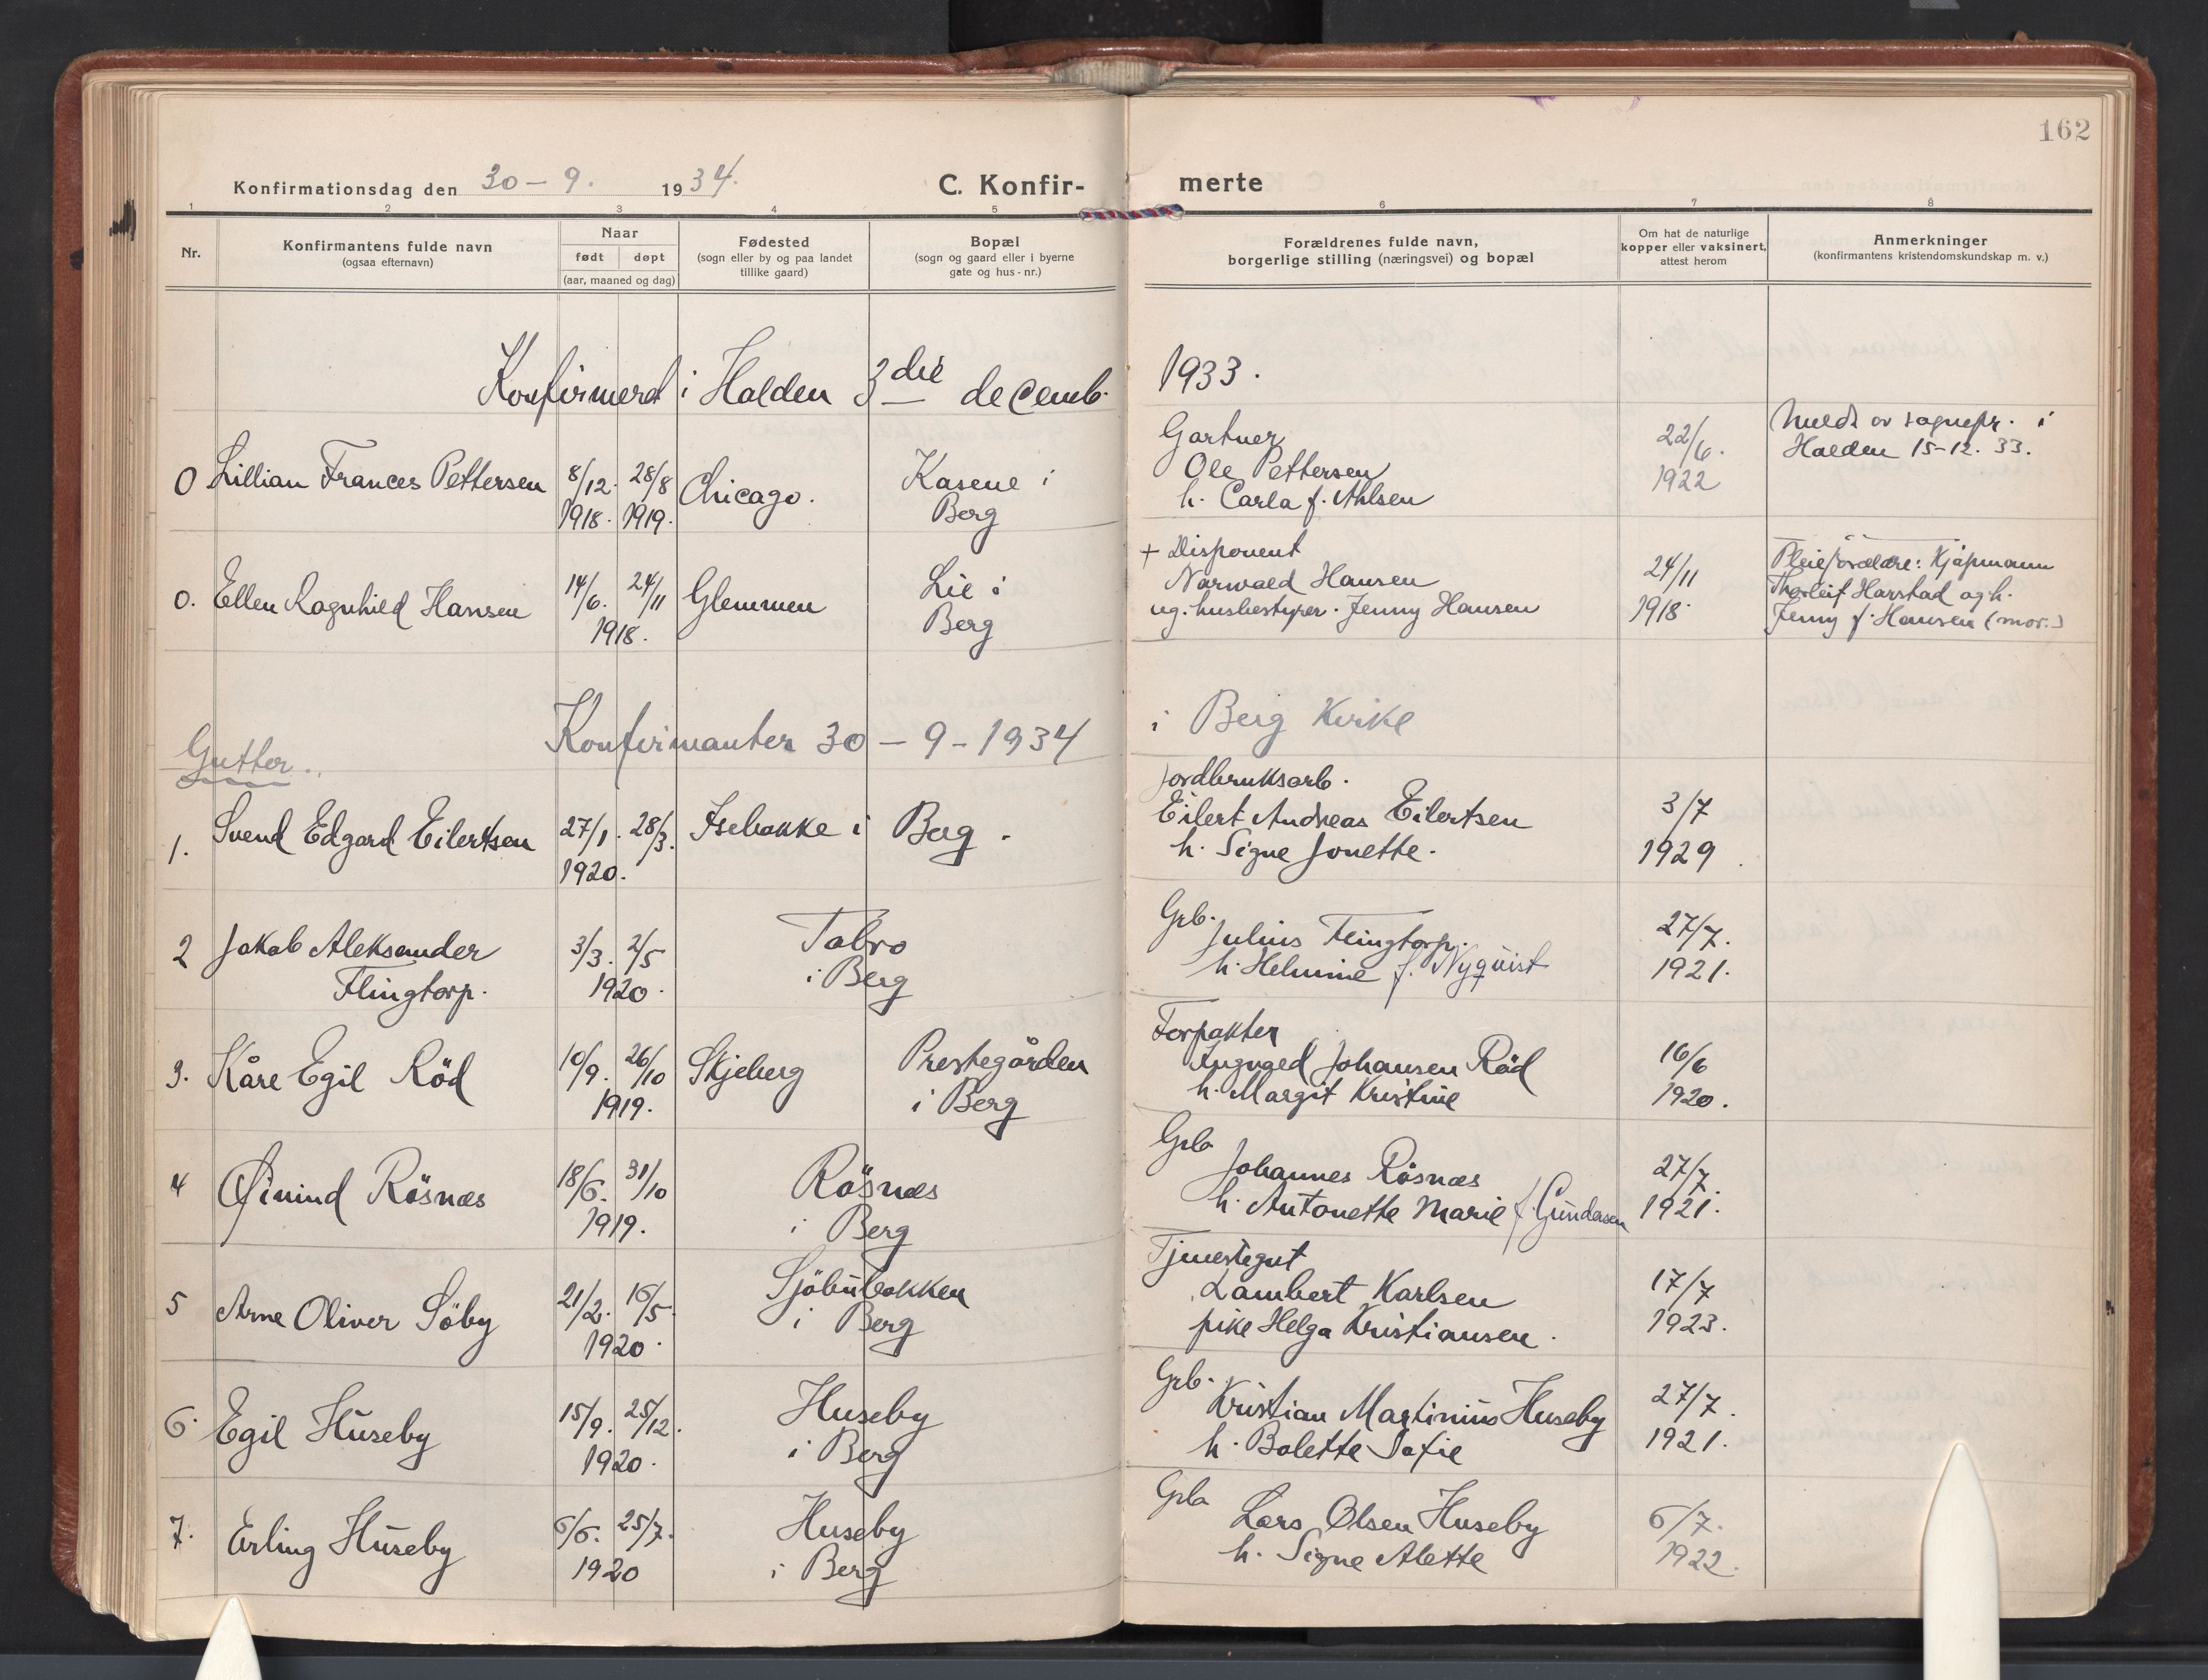 162
Konfirmationsdag den 30 – 9. 1934.
C. Konfir- merte
1 2 3 4 5 6 7 8
Nr.
Konfirmantens fulde navn
(ogsaa efternavn)
Naar
født døpt
(aar, maaned og dag)
Fødested
(sogn eller by og paa landet
tillike gaard)
Bopæl
(sogn og gaard eller i byerne
gate og hus - nr.)
Forældrenes fulde navn,
borgerlige stilling (næringsvei) og bopæl
Om hat de naturlige
kopper eller vaksinert,
attest herom
Anmerkninger
(konfirmantens kristendomskundskap m. v.)
Konfirmert i Halden 3die decemb. 1933.
0 Lillian Frances Pettersen
8/12. 28/8
1918. 1919.
Chicago.
Kasene i
Berg
Gartner
Ole Pettersen
h. Carla f. Ahlsen
22/6.
1922
Meldt av sognepr. i
Halden 15-12. 33.
0. Ellen Ragnhild Hansen
14/6. 24/11
1918.
Glemmen
Lie i
Berg
+ Disponent
Narwald Hansen
ug. husbestyrer. Jenny Hansen
24/11
1918.
Pleieforældre: Kjøpmann
Thorleif Harstad og h.
Jenny f. Hansen (mor.)
Konfirmanter 30 – 9 – 1934 i Berg Kirke
Gutter.
1. Svend Edgard Eilertsen
27/1. 28/3.
1920.
Isebakke i Berg.
Jordbruksarb.
Eilert Andreas Eilertsen
h. Signe Jonette.
3/7
1929.
2 Jakob Aleksander
Flingtorp.
3/3. 2/5
1920.
Tabro
i Berg
Grb.
Julius Flingtorp.
h. Helmine f. Nyquist
27/7.
1921.
3. Kåre Egil Röd
10/9. 26/10
1919.
Skjeberg
Prestegården
i Berg
Forpakter
Ingvald Johansen Röd
h. Margit Kristine
16/6
1920.
4 Øivind Rösnæs
18/6. 31/10
1919.
Rösnæs
i Berg
Grb
Johannes Rösnæs
h. Antonette Marie f. Gundersen
27/7.
1921.
5 Arne Oliver Söby
21/2. 16/5.
1920.
Sjöbubakken
i Berg
Tjenestegut
Lambert Karlsen
pike Helga Kristiansen.
17/7
1923.
6. Egil Huseby
15/9. 25/12.
1920.
Huseby
i Berg
Grb.
Kristian Martinius Huseby
h. Bolette Sofie
27/7.
1921.
7. Erling Huseby
6/6. 25/7.
1920
Huseby
i Berg
Grb
Lars Olsen Huseby
h. Signe Alette
6/7.
1922.